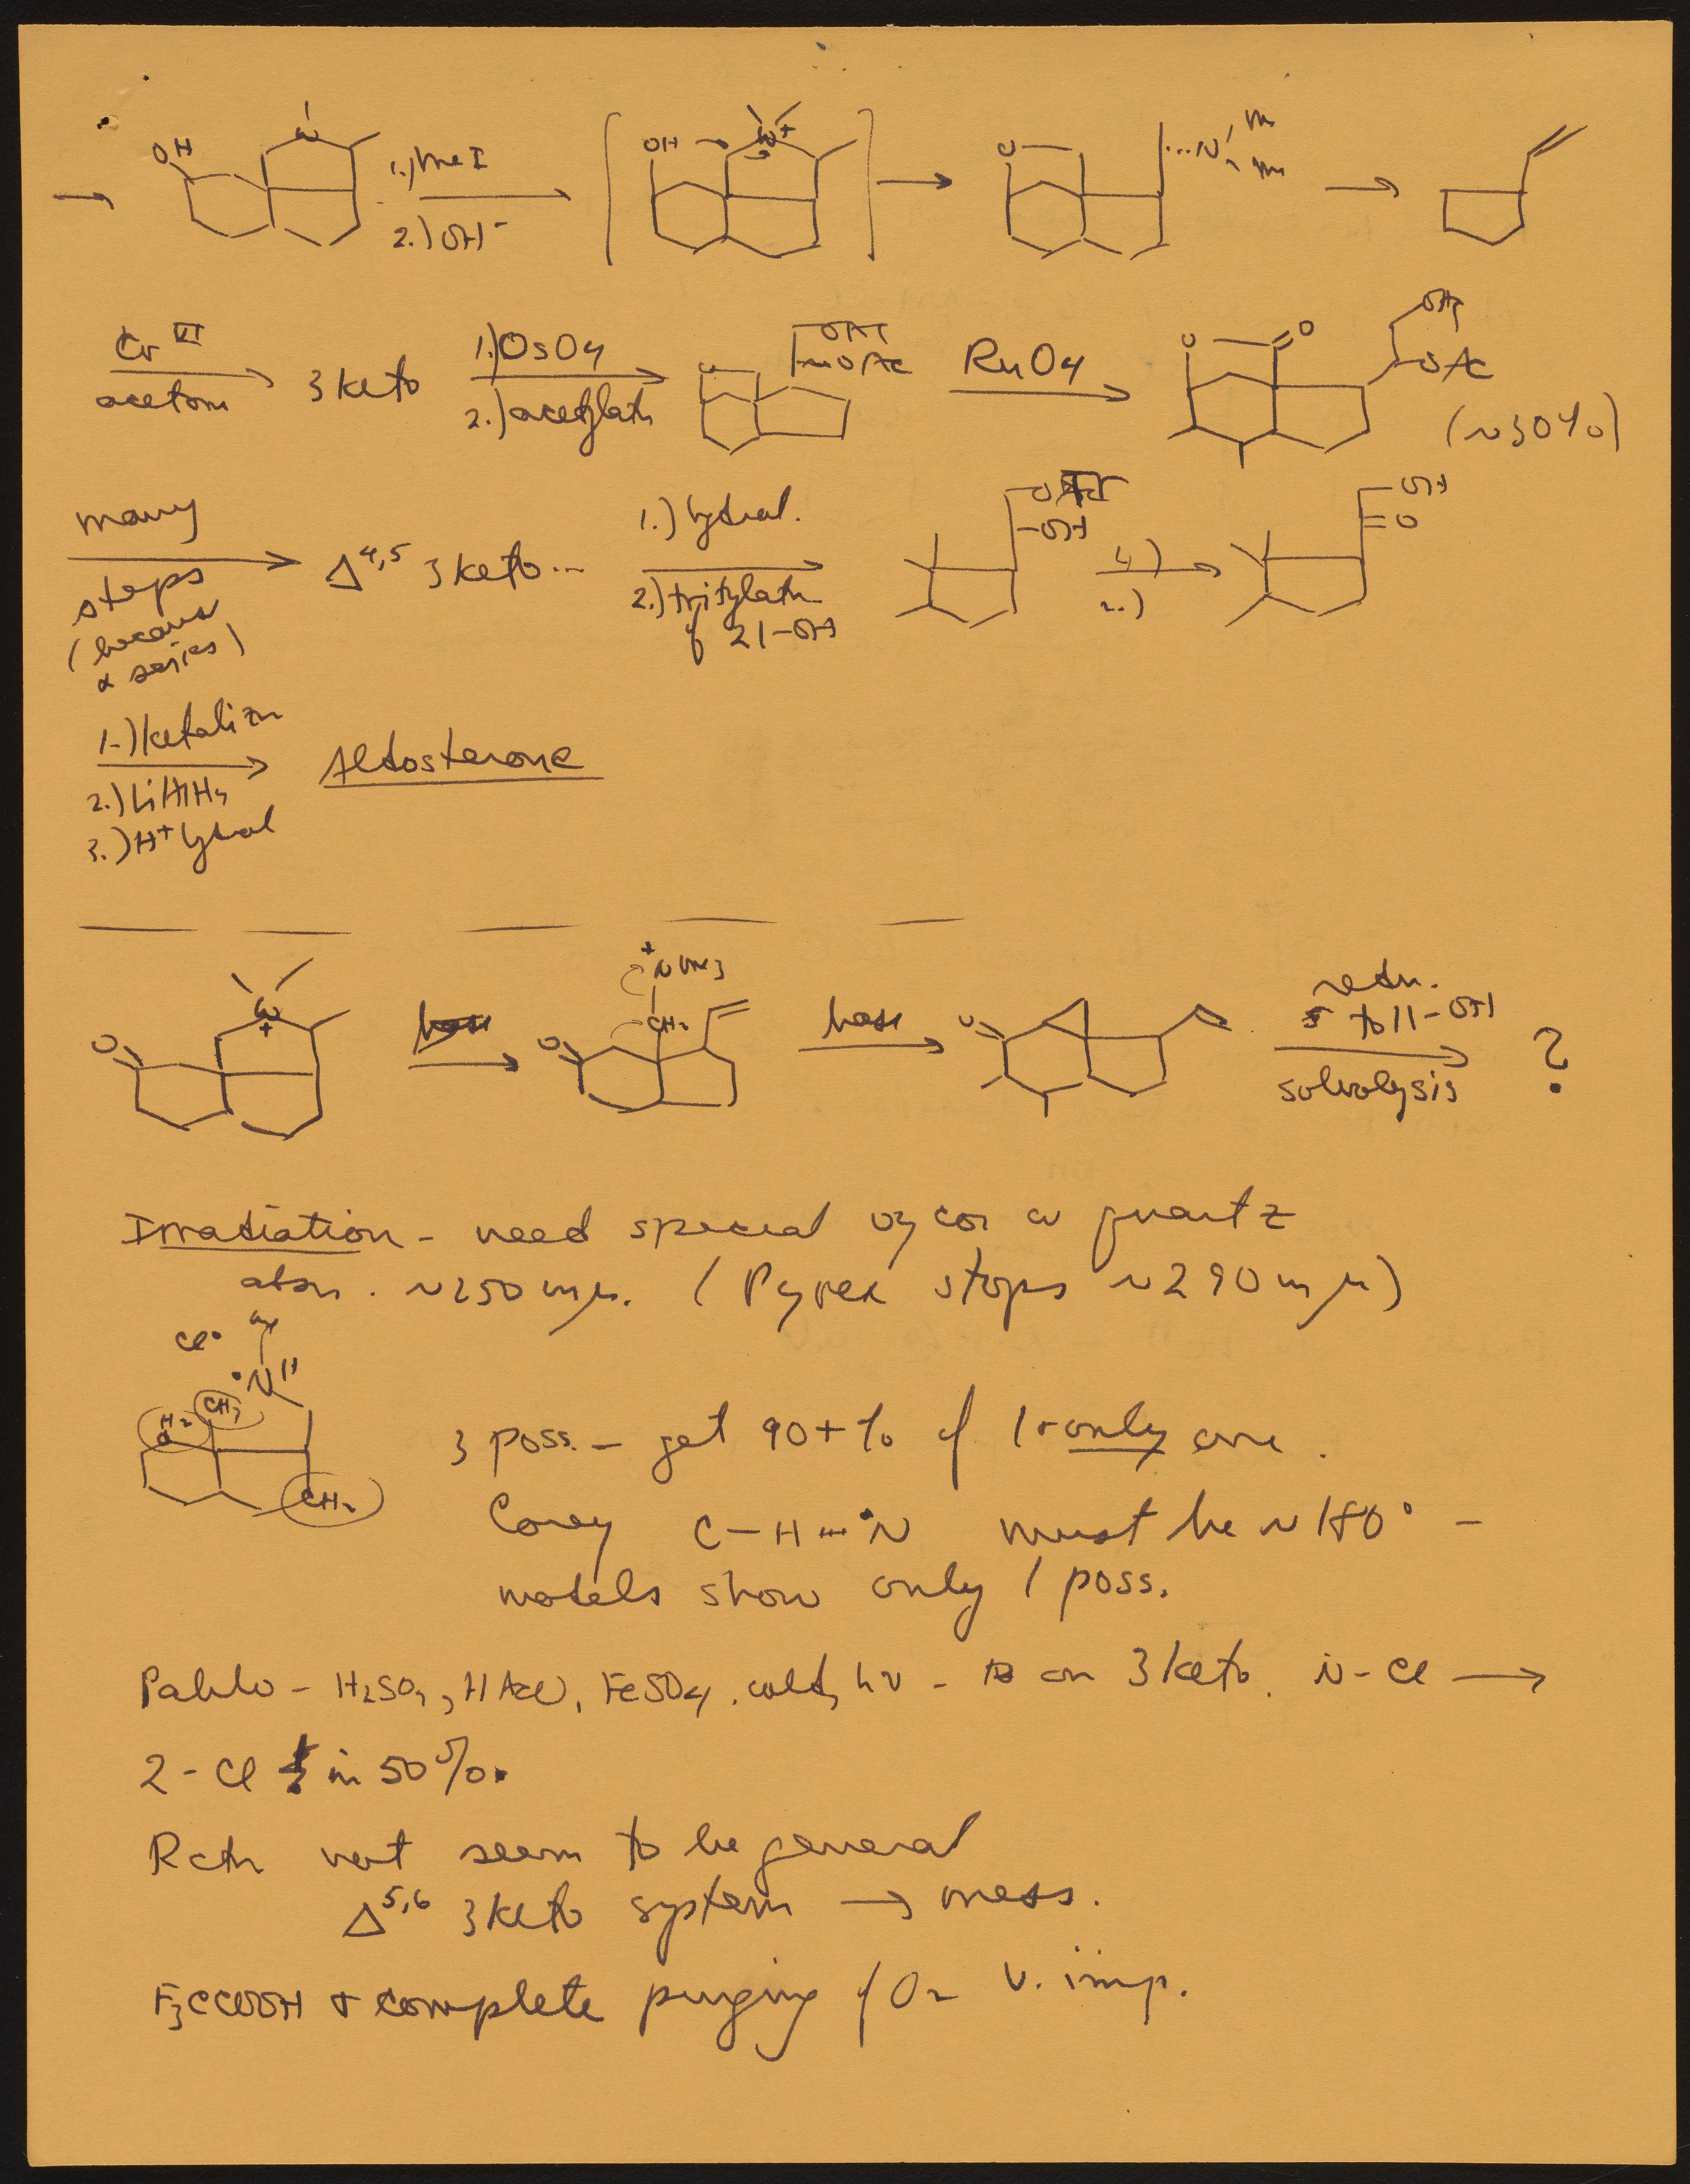 → OH N 1.) MeI 2.) OH⁻ [ OH N+ ] → O ...N m m →
Cr VI acetone → 3 keto 1.) OsO4 2.) acetylatn → O OAc OAc RuO4 → O O OAc OAc (~30%)
many steps (because α series) → Δ4,5 3 keto... 1.) hydrol. 2.) tritylatn of 21-OH → OTr OH 1.) 2.) → OH =O
1.) ketalizn 2.) LiAlH4 3.) H+ hydrol → Aldosterone
O N+ → O +NMe3 CH2 base → O redn. to 11-OH solvolysis → ?
Irradiation - need special vycor or quartz
absn. ~250 mμ. (Pyrex stops ~290 mμ)
Cl• •N H
H2 C CH3
CH2
3 poss. - get 90+% of 1 + only one.
Corey C-H---•N must be ~180° -
models show only 1 poss.
Pablo - H2SO4, HAc, FeSO4, cold, hν - on 3 keto. N-Cl →
2-Cl in 50%.
Rctn not seem to be general
Δ5,6 3 keto system → mess.
F3CCOOH + complete purging of O2 v. imp.